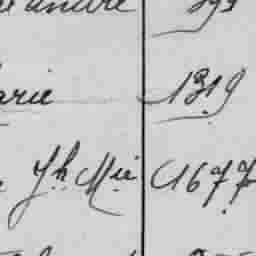 andré
arie 1319
Jh Mie 1677